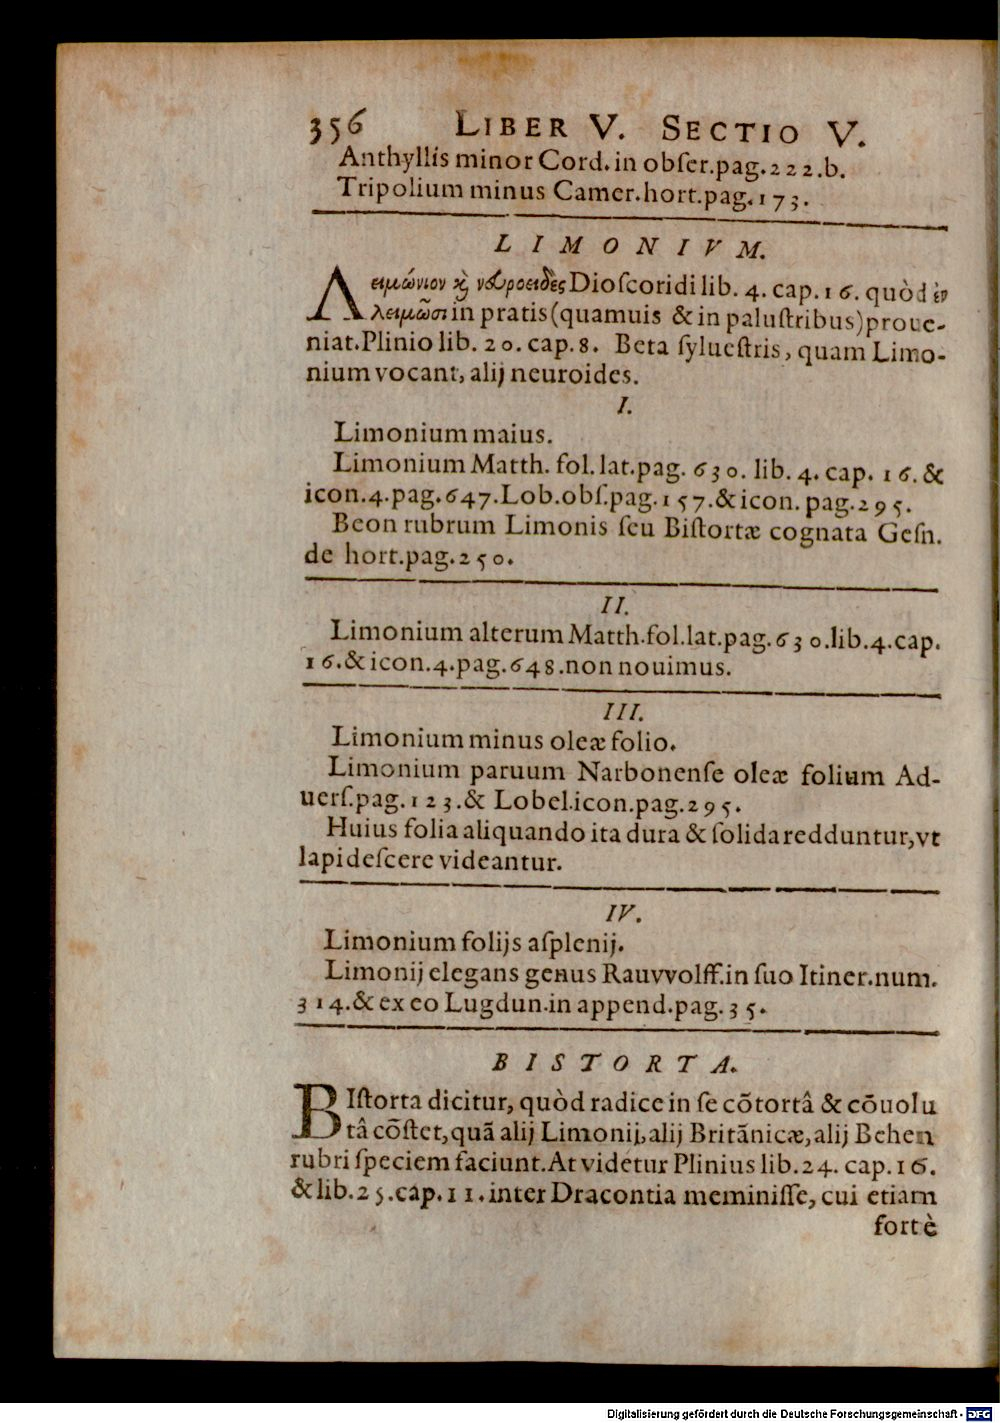 356 LIBER V. SECTIO V.
Anthyllis minor Cord. in obſer. pag. 222. b.
Tripolium minus Camer. hort. pag. 173.
LIMONIVM.
Λειμώνιον καὶ νευροειδὲς Dioſcoridi lib. 4. cap. 16. quòd ἐν
λειμῶσι in pratis (quamuis & in paluſtribus) proue-
niat. Plinio lib. 20. cap. 8. Beta ſylueſtris, quam Limo-
nium vocant, alij neuroides.
I.
Limonium maius.
Limonium Matth. fol. lat. pag. 630. lib. 4. cap. 16. &
icon. 4. pag. 647. Lob. obſ. pag. 157. & icon. pag. 295.
Beon rubrum Limonis ſeu Biſtortæ cognata Geſn.
de hort. pag. 250.
II.
Limonium alterum Matth. fol. lat. pag. 630. lib. 4. cap.
16. & icon. 4. pag. 648. non nouimus.
III.
Limonium minus oleæ folio.
Limonium paruum Narbonenſe oleæ folium Ad-
uerſ. pag. 123. & Lobel. icon. pag. 295.
Huius folia aliquando ita dura & ſolida redduntur, vt
lapideſcere videantur.
IV.
Limonium folijs aſplenij.
Limonij elegans genus Rauvvolff. in ſuo Itiner. num.
314. & ex eo Lugdun. in append. pag. 35.
BISTORTA.
BIſtorta dicitur, quòd radice in ſe cõtortâ & cõuolu
tâ cõſtet, quã alij Limonij, alij Britãnicæ, alij Behen
rubri ſpeciem faciunt. At videtur Plinius lib. 24. cap. 16.
& lib. 25. cap. 11. inter Dracontia meminiſſe, cui etiam
fortè
Digitalisierung gefördert durch die Deutsche Forschungsgemeinschaft - DFG